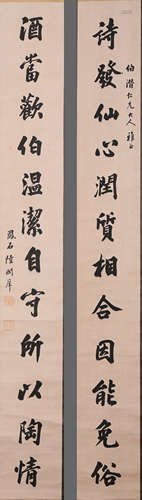 伯潛仁兄大人雅正
詩發仙心潤質相合因能免俗
酒當歡伯溫潔自守所以陶情
陸潤庠